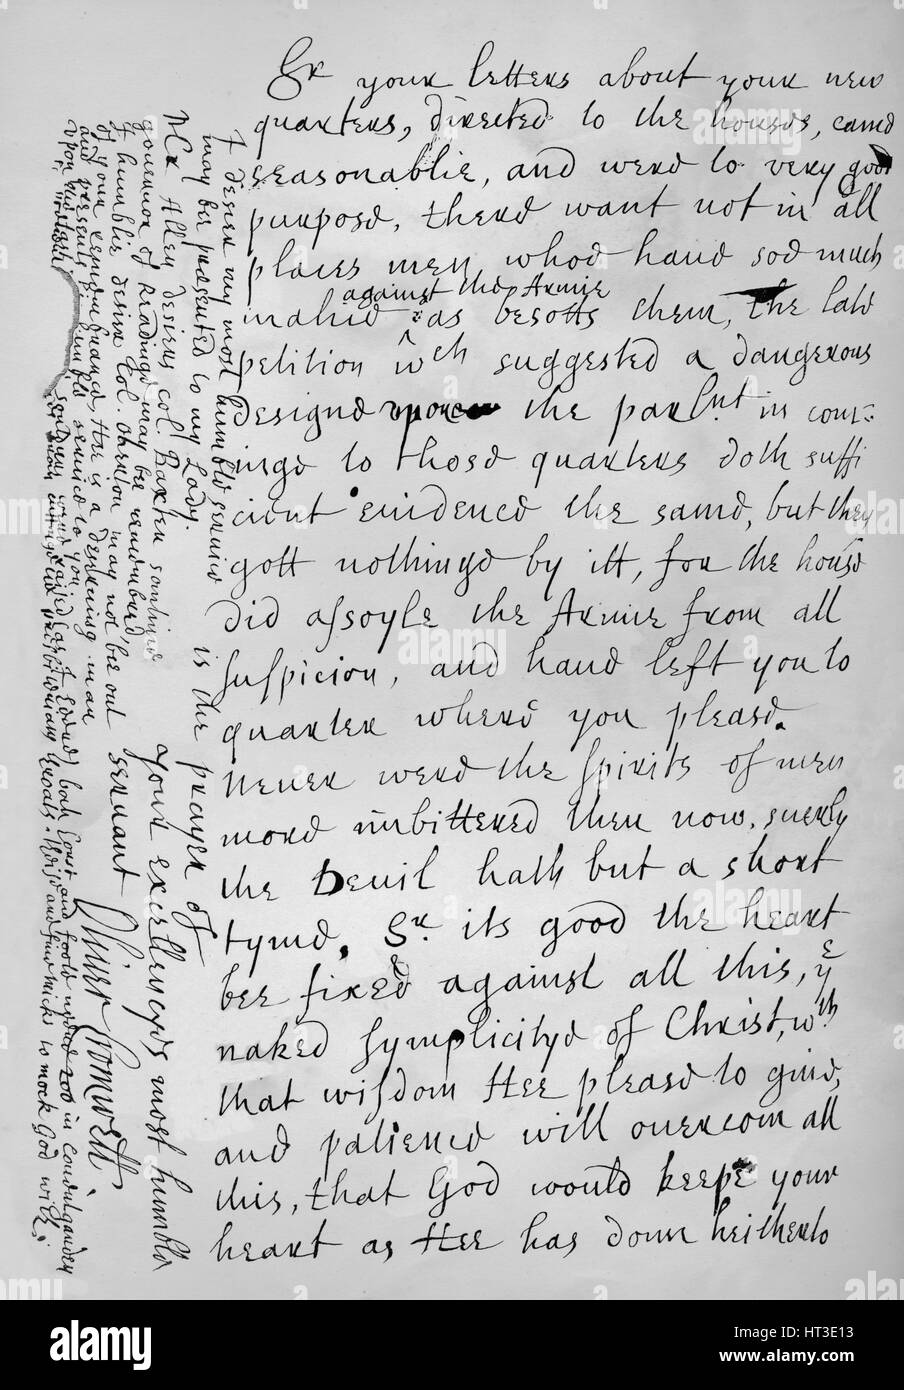 Sr your letters about your new
quarters, directed to the houses, came
seasonablie, and were to very good
purpose, there want not in all
places men whoe have soe much
malice against the Armie as besotts them, the late
petition wch suggested a dangerous
designe upon the parlnt in com-
inge to those quarters doth suffi
cient evidence the same, but they
gott nothinge by itt, for the house
did assoyle the Armie from all
suspicion, and have left you to
quarter where you please.
Never were the spirits of men
more imbittered then now, suerly
the Devil hath but a short
tyme, Sr. its good the heart
bee fixed against all this, ye
naked symplicitye of Christ, wth
that wisdom Hee please to give,
and patience will overcom all
this, that God would keepe your
heart as Hee has donn heitherto
is the prayer of
your excellencyes most humble
servant
Oliver Cromwell
I desier my most humble service
may bee presented to my Lady.
Mr Allen desiers Col. Baxter somtime
governor of Readinge may bee remembred,
I humblie desier Col. Overton may not be out
of your remembrance, Hee is a deserving man
and presents his humble service to you.
alamy
alamy stock photo
HT3E13
www.alamy.com